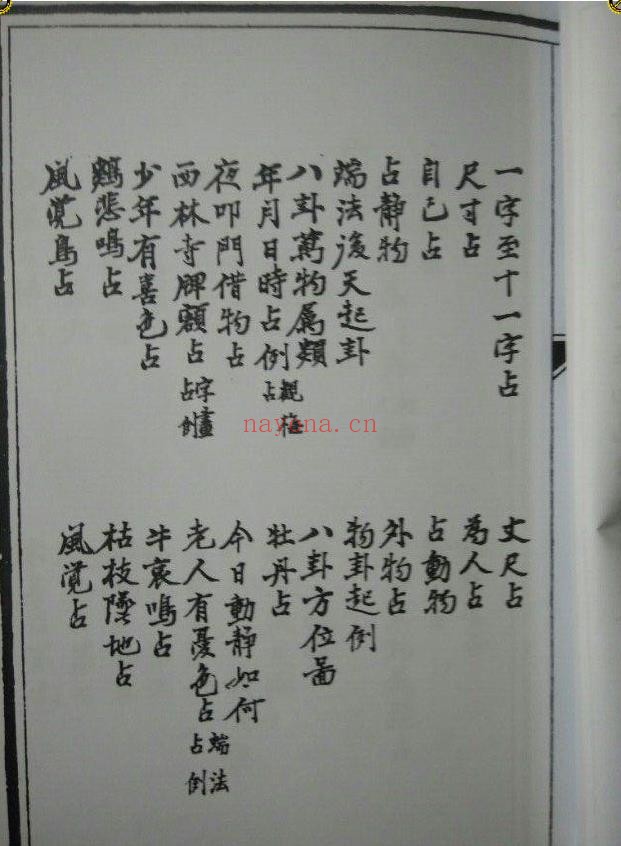 一字至十一字占
尺寸占
自己占
占静物
端法後天起卦
八卦萬物屬類
年月日時占例 觀梅占
夜叩門借物占
西林寺牌額占 字畫占例
少年有喜色占
鷄悲鳴占
風覚鳥占
丈尺占
為人占
占動物
外物占
物卦起例
八卦方位啚
牡丹占
今日動静如何
老人有憂色占 端法占例
牛哀鳴占
枯枝墜地占
風覚占
nayona.cn